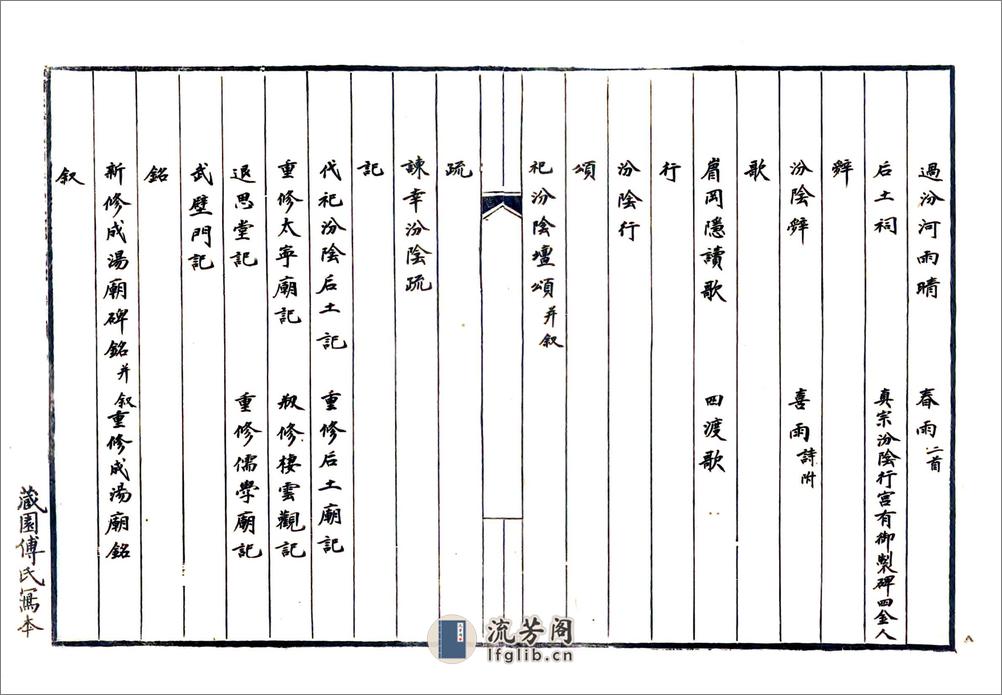 過汾河雨晴　春雨二首
后土祠　真宗汾陰行宮有御製碑四金人
辭
汾陰辭　喜雨詩附
歌
眉岡隱讀歌　四渡歌
行
汾陰行
頌
祀汾陰壇頌并叙
疏
諫幸汾陰疏
記
代祀汾陰后土記　重修后土廟記
重修太寧廟記　叔修棲雲觀記
退思堂記　重修儒學廟記
武壁門記
銘
新修成湯廟碑銘并叙　重修成湯廟銘
叙
藏園傅氏寫本
流芳阁
lfglib.cn